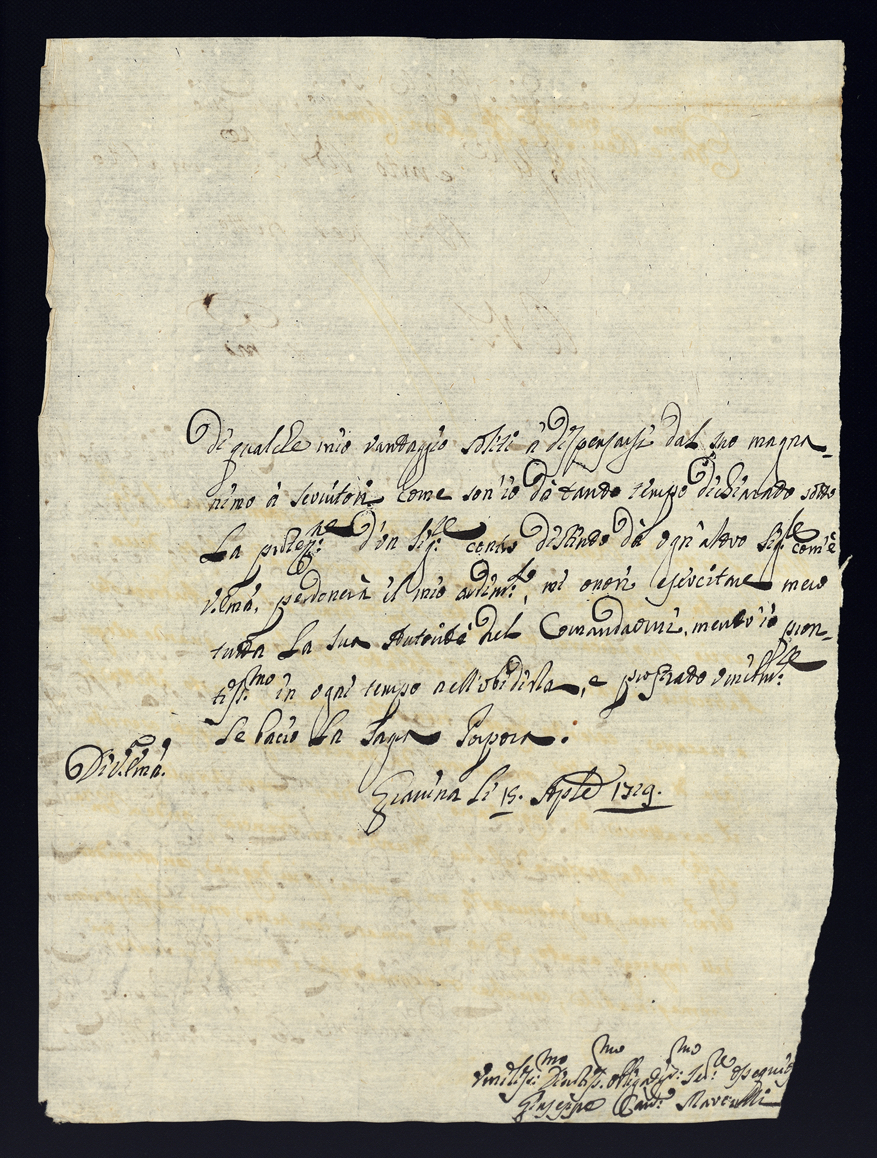 di qualche mio vantaggio soliti à dispensarsi dal suo magna-
nimo à servitori come son'io dà tanto tempo dichiarato sotto
La protez:ne d'un Sig:re tanto distinto dà ogn'altro Sig:re com'è
V.Emã. perdonerà il mio ardim:to, mi onori esercitare meco
tutta La sua Autorità nel Comandarmi, mentr'io pron-
tiss:mo in ogni tempo nell'obidirla, e prostrato umilm:te
Le bacio La Sagra Porpora.
Di V.Emã.
Gravina Li 15. Aple 1729.
Umiliss:mo Divotiss:mo obligatiss:mo Ser:re
Giuseppe